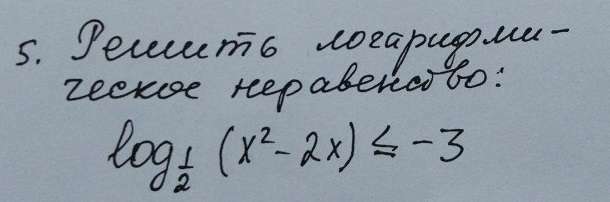 5. Решить логарифми-
ческое неравенство:
log½ (x² - 2x) ≤ -3